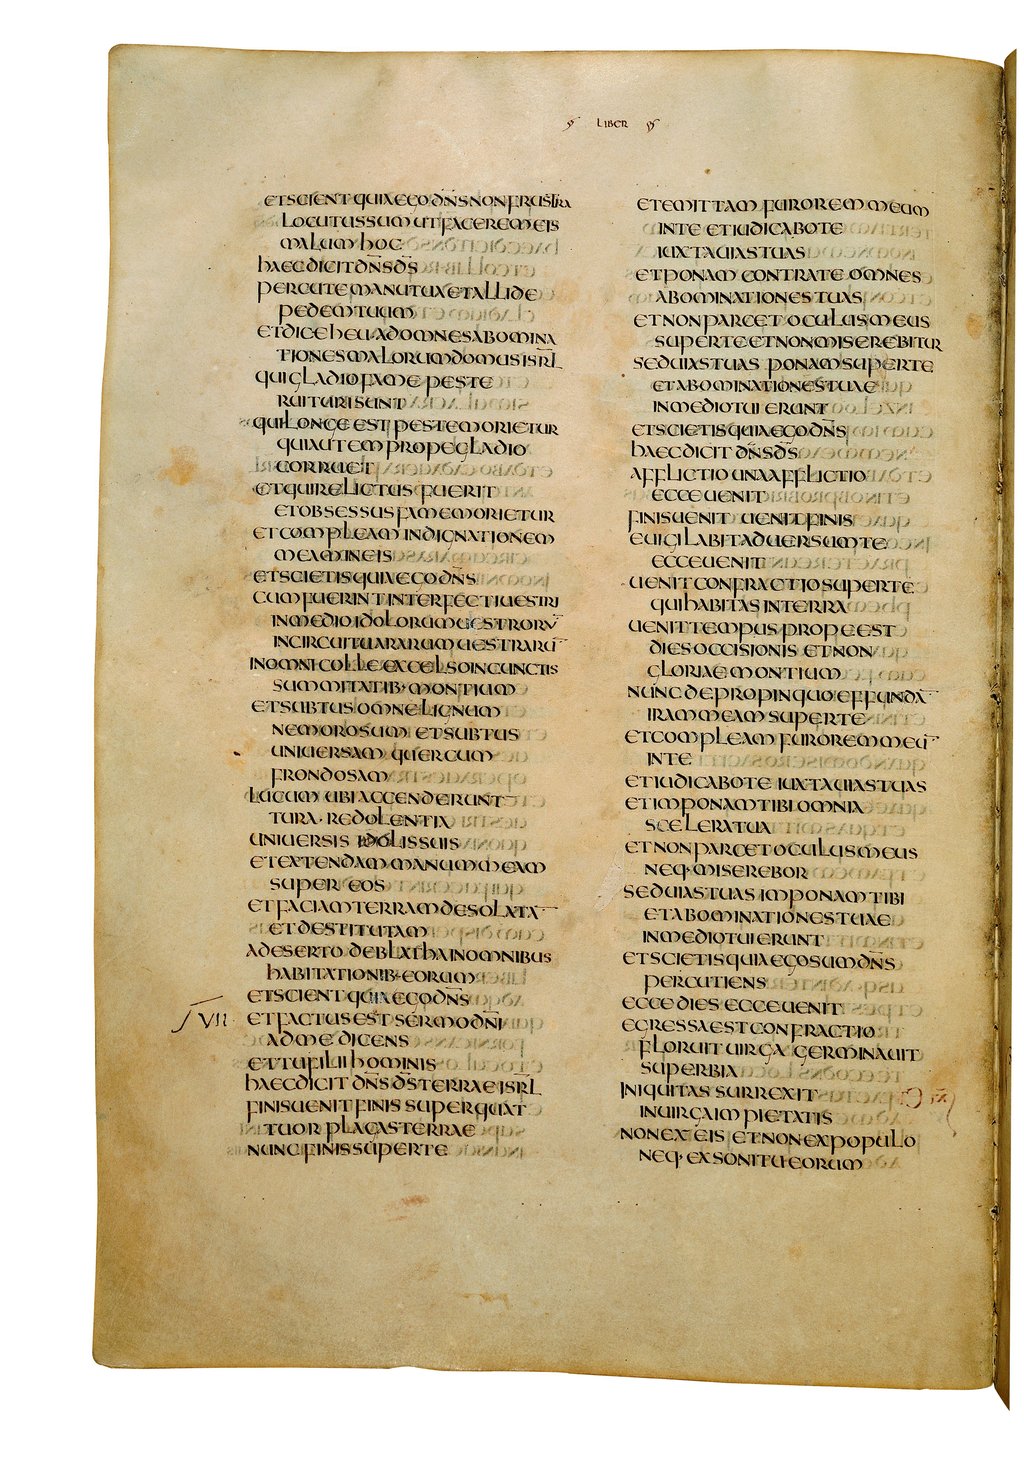 LIBER
ETSCIENT QUIAEGO DN̄S NON FRUSTRA
LOCUTUS SUM UT FACEREM EIS
MALUM HOC
HAEC DICIT DN̄S D̄S
PERCUTE MANU TUA ET ALLIDE
PEDEM TUUM
ET DIC EHEU AD OMNES ABOMINA
TIONES MALORUM DOMUS ISRL̄
QUI GLADIO FAME PESTE
RUITURI SUNT
QUI LONGE EST PESTE MORIETUR
QUI AUTEM PROPE GLADIO
CORRUET
ET QUI RELICTUS FUERIT
ET OBSESSUS FAME MORIETUR
ET COMPLEAM INDIGNATIONEM
MEAM IN EIS
ET SCIETIS QUIA EGO DN̄S
CUM FUERINT INTERFECTI UESTRI
IN MEDIO IDOLORUM UESTRORŪ
IN CIRCUITU ARARUM UESTRARŪ
IN OMNI COLLE EXCELSO IN CUNCTIS
SUMMITATIB· MONTIUM
ET SUBTUS OMNE LIGNUM
NEMOROSUM ET SUBTUS
UNIUERSAM QUERCUM
FRONDOSAM
LOCUM UBI ACCENDERUNT
TURA· REDOLENTIA
UNIUERSIS IDOLIS SUIS
ET EXTENDAM MANUM MEAM
SUPER EOS
ET FACIAM TERRAM DESOLATĀ
ET DESTITUTAM
A DESERTO DEBLATHA IN OMNIBUS
HABITATIONIB· EORUM
ET SCIENT QUIA EGO DN̄S
VII· ET FACTUS EST SERMO DN̄I
AD ME DICENS
ET TU FILII HOMINIS
HAEC DICIT DN̄S D̄S TERRAE ISRL̄
FINIS UENIT FINIS SUPER QUAT
TUOR PLAGAS TERRAE
NUNC FINIS SUPER TE
ET EMITTAM FUROREM MEUM
IN TE ET IUDICABO TE
IUXTA UIAS TUAS
ET PONAM CONTRA TE OMNES
ABOMINATIONES TUAS
ET NON PARCET OCULUS MEUS
SUPER TE ET NON MISEREBITUR
SED UIAS TUAS PONAM SUPER TE
ET ABOMINATIONES TUAE
IN MEDIO TUI ERUNT
ET SCIETIS QUIA EGO DN̄S
HAEC DICIT DN̄S D̄S
AFFLICTIO UNA AFFLICTIO
ECCE UENIT
FINIS UENIT UENIT FINIS
EUIGILABIT ADUERSUM TE
ECCE UENIT
UENIT CONFRACTIO SUPER TE
QUI HABITAS IN TERRA
UENIT TEMPUS PROPE EST
DIES OCCISIONIS ET NON
GLORIAE MONTIUM
NUNC DE PROPINQUO EFFUNDĀ
IRAM MEAM SUPER TE
ET COMPLEAM FUROREM MEŪ
IN TE
ET IUDICABO TE IUXTA UIAS TUAS
ET IMPONAM TIBI OMNIA
SCELERA TUA
ET NON PARCET OCULUS MEUS
NEQ· MISEREBOR
SED UIAS TUAS IMPONAM TIBI
ET ABOMINATIONES TUAE
IN MEDIO TUI ERUNT
ET SCIETIS QUIA EGO SUM DN̄S
PERCUTIENS
ECCE DIES ECCE UENIT
EGRESSA EST CONFRACTIO
FLORUIT UIRGA GERMINAUIT
SUPERBIA
INIQUITAS SURREXIT
IN UIRGA IMPIETATIS
NON EX EIS ET NON EX POPULO
NEQ· EX SONITU EORUM